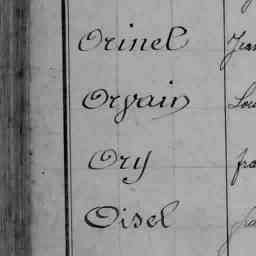 Orinel
Orvain
Ory
Oisel